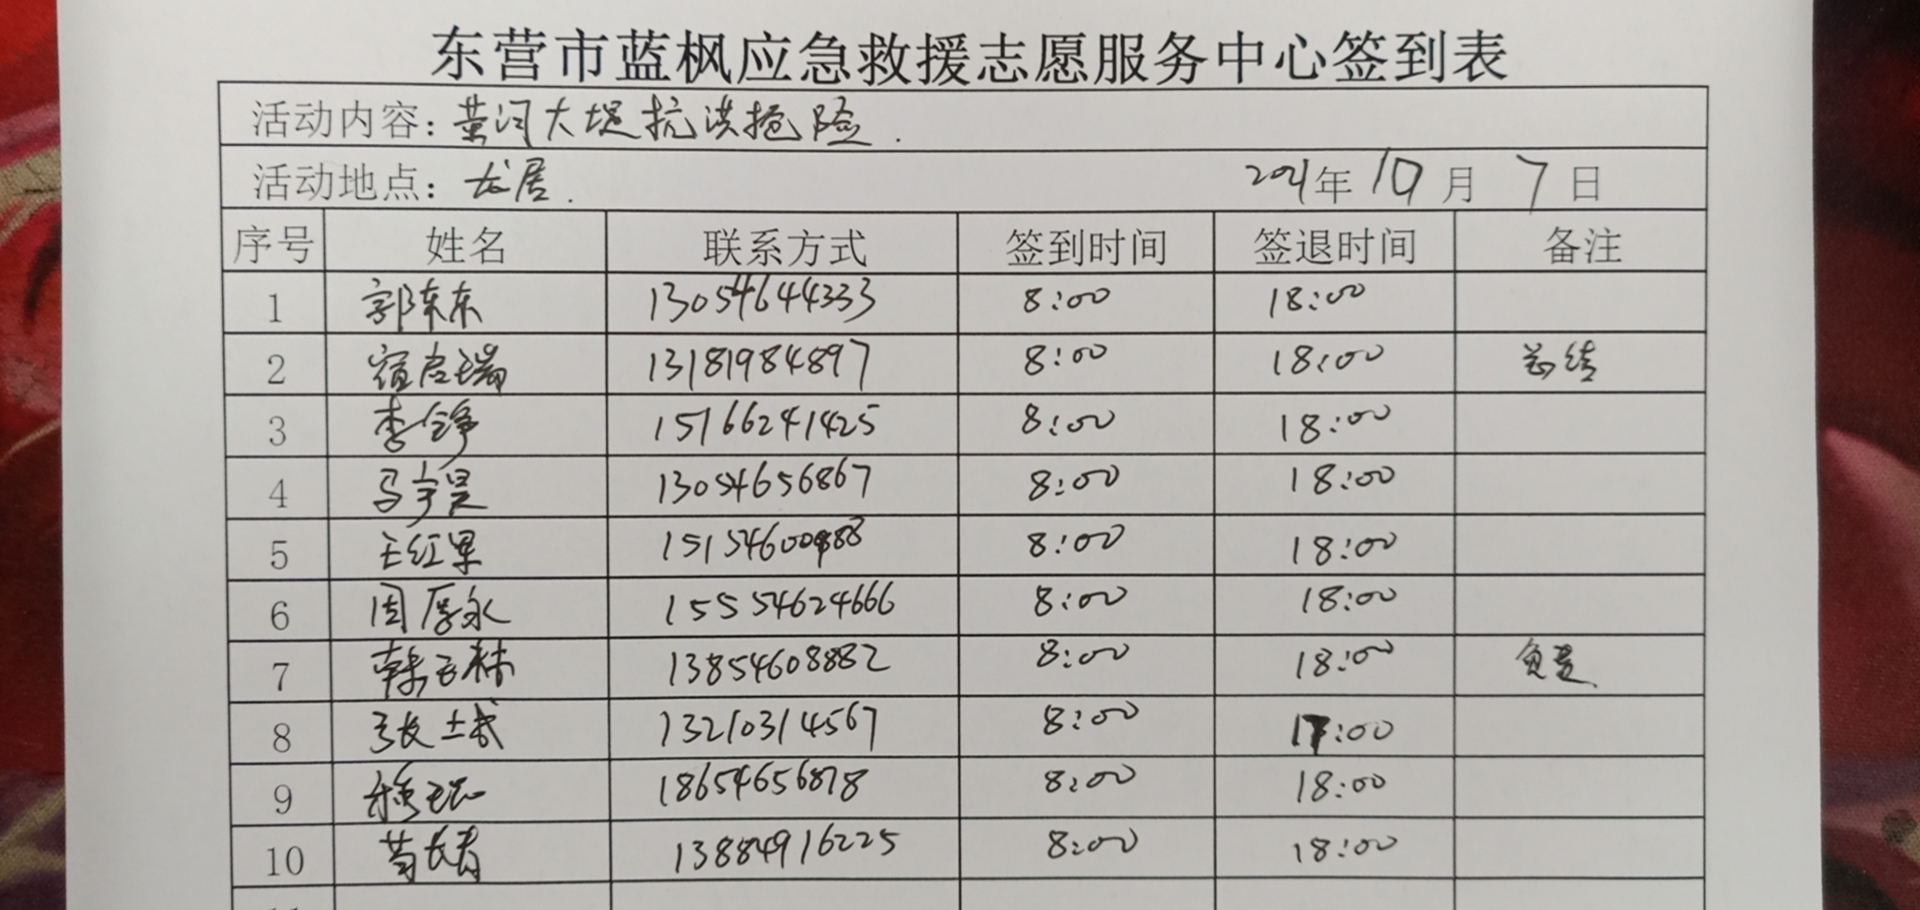 东营市蓝枫应急救援志愿服务中心签到表
活动内容：黄河大堤抗洪抢险.
活动地点：龙居. 2021年 10 月 7 日
序号 姓名 联系方式 签到时间 签退时间 备注
1 郭东东 13054644333 8:00 18:00
2 宿启瑞 13181984897 8:00 18:00 总结
3 李铮 15166241425 8:00 18:00
4 马宇昊 13054656867 8:00 18:00
5 王红军 8:00 18:00
6 周厚永 15554624666 8:00 18:00
7 韩玉林 13854608882 8:00 18:00 负责
8 张士武 13210314567 8:00 17:00
9 18654656878 8:00 18:00
10 13884916225 8:00 18:00